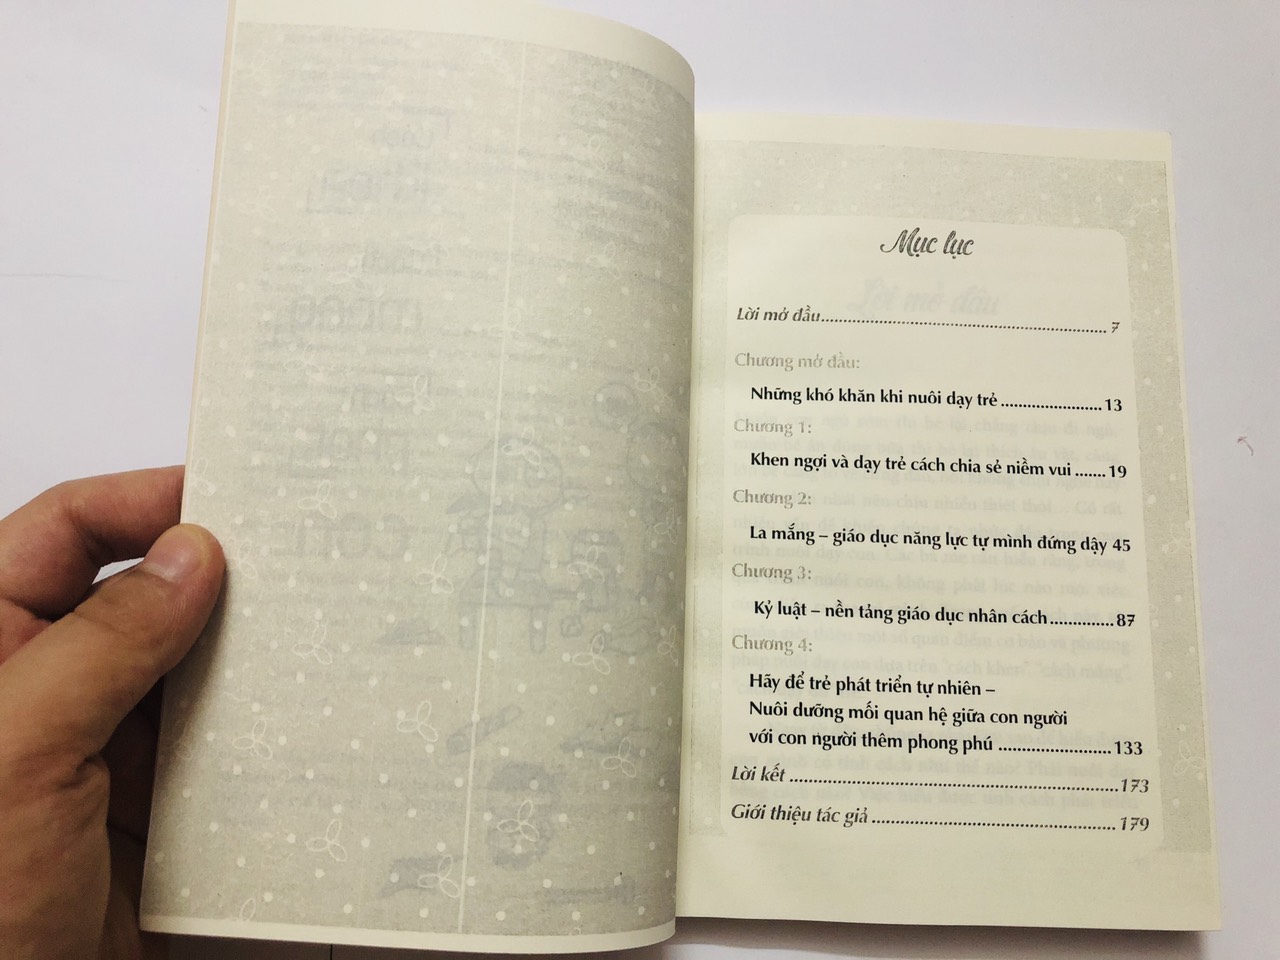 Mục lục
Lời mở đầu............................................................ 7
Chương mở đầu:
Những khó khăn khi nuôi dạy trẻ ....................... 13
Chương 1:
Khen ngợi và dạy trẻ cách chia sẻ niềm vui ....... 19
Chương 2:
La mắng – giáo dục năng lực tự mình đứng dậy 45
Chương 3:
Kỷ luật – nền tảng giáo dục nhân cách.............. 87
Chương 4:
Hãy để trẻ phát triển tự nhiên –
Nuôi dưỡng mối quan hệ giữa con người
với con người thêm phong phú ......................... 133
Lời kết ..................................................................... 173
Giới thiệu tác giả ................................................... 179